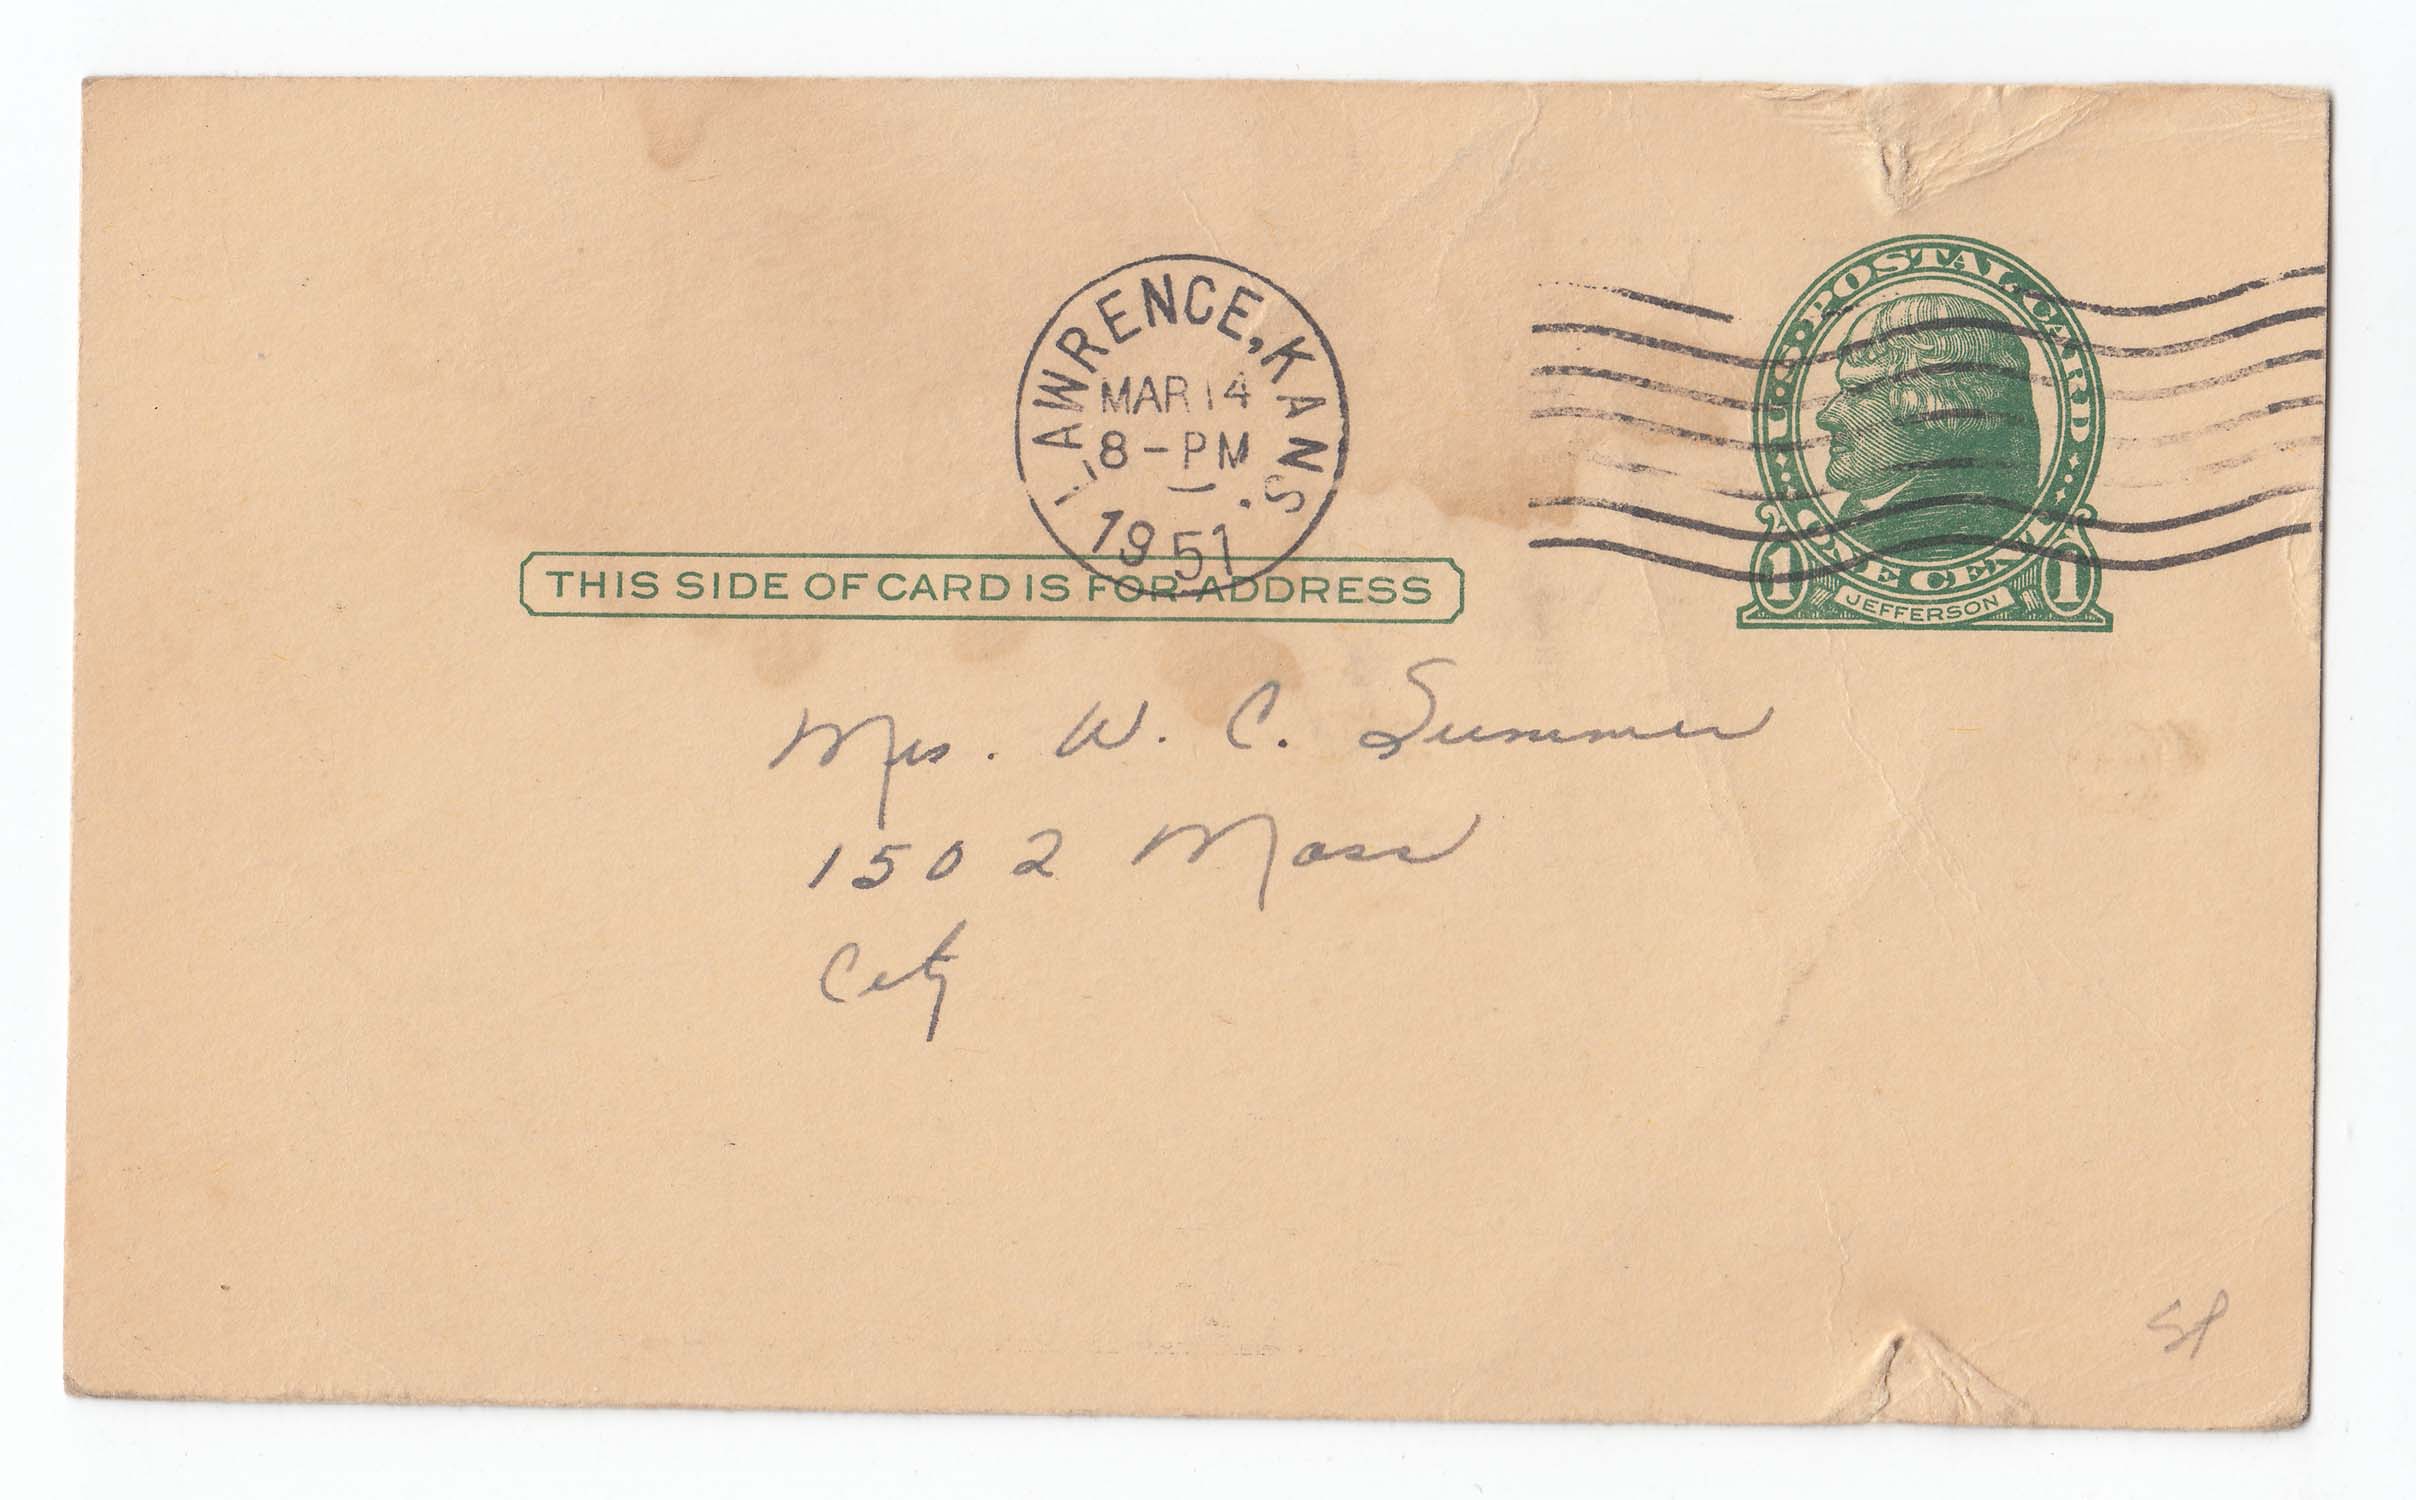 LAWRENCE, KANS.
MAR 14
8 - PM
1951
U.S. POSTAL CARD
1 ONE CENT 1
JEFFERSON
THIS SIDE OF CARD IS FOR ADDRESS
Mrs. W. C. Summer
1502 Mass
City